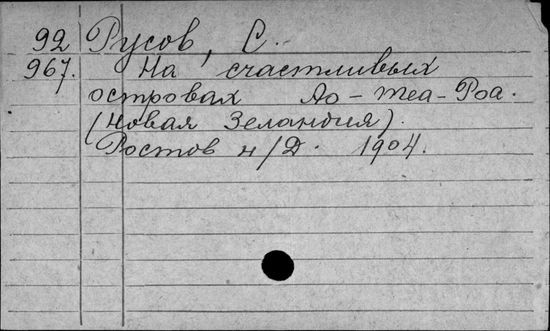 92 Русов, С.
967. На счастливых
островах Ао-теа-Роа.
(Новая Зеландия).
Ростов н/Д. 1904.